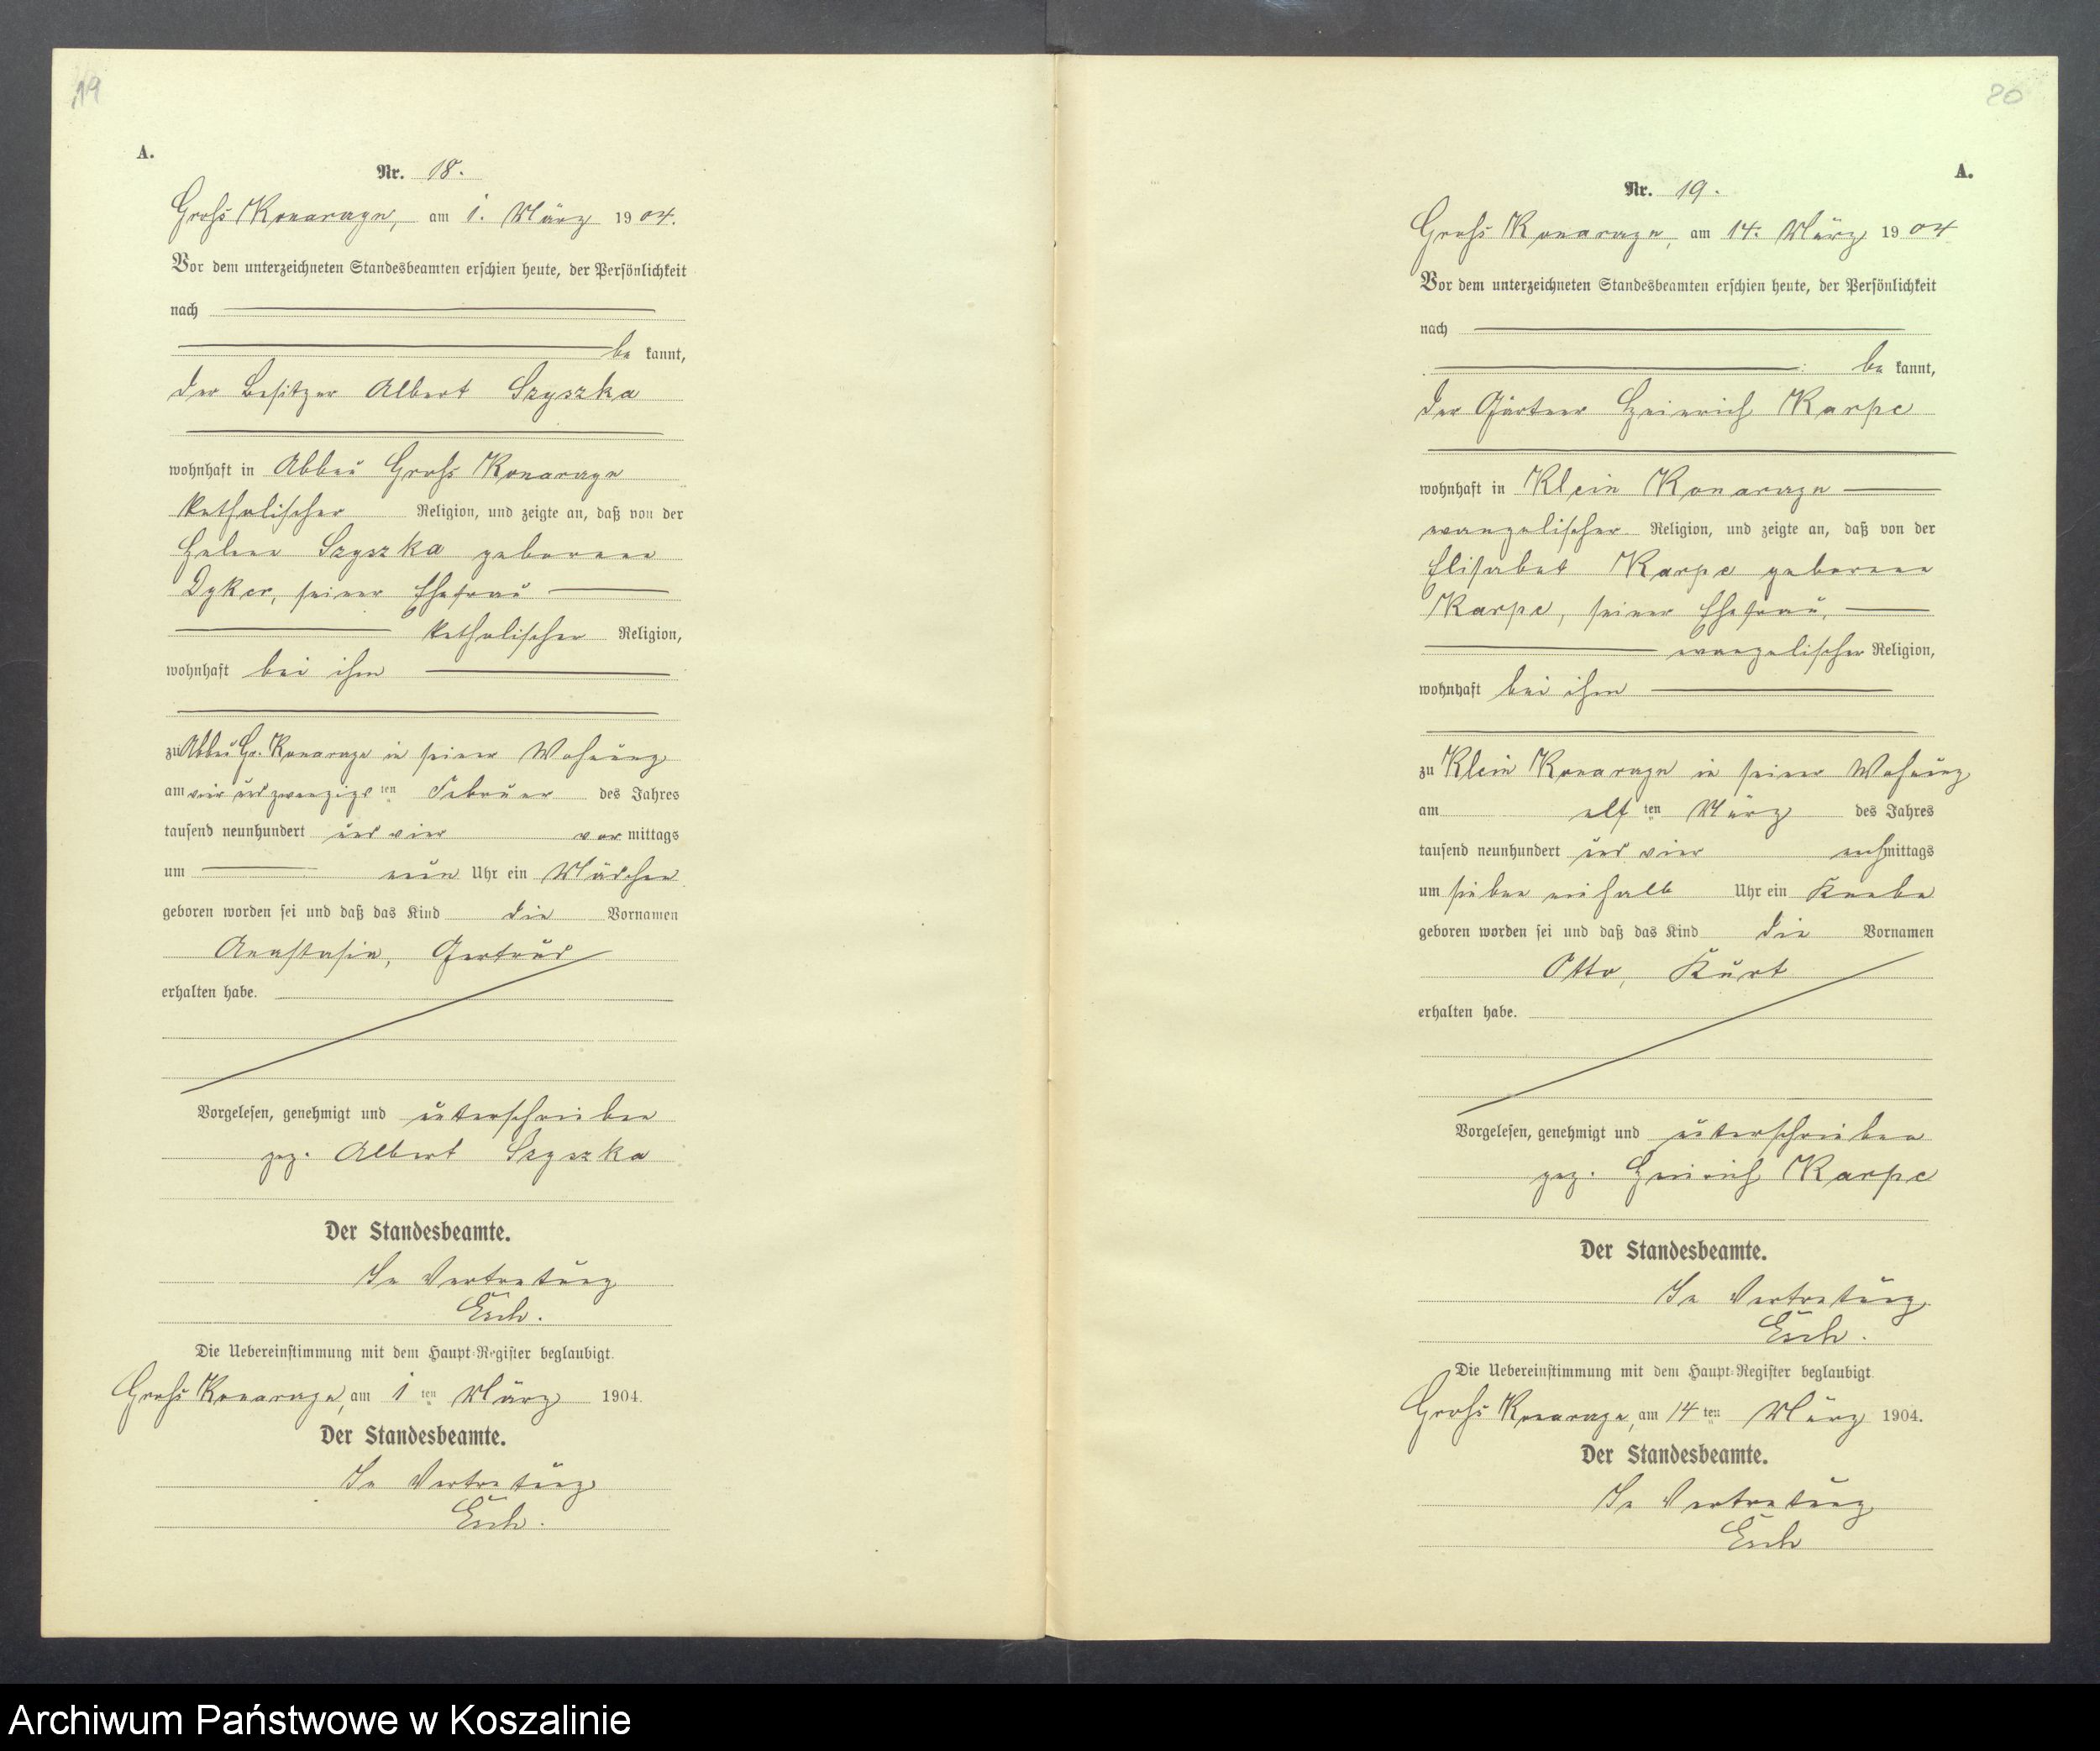 19
A.
Nr. 18.
Groß Konarczyn, am 1. März 1904.
Vor dem unterzeichneten Standesbeamten erschien heute, der Persönlichkeit
nach
be kannt,
der Besitzer Albert Szyszka
wohnhaft in Abbau Groß Konarczyn
katholischer Religion, und zeigte an, daß von der
Helene Szyszka geborenen
Dyker, seiner Ehefrau
katholischer Religion,
wohnhaft bei ihm
zu Abbau Gr. Konarzyn in seiner Wohnung
am vier und zwanzigsten Februar des Jahres
tausend neunhundert und vier vor mittags
um neun Uhr ein Mädchen
geboren worden sei und daß das Kind die Vornamen
Anastasia, Gertrud
erhalten habe.
Vorgelesen, genehmigt und unterschrieben
gez. Albert Szyszka
Der Standesbeamte.
In Vertretung
Esch.
Die Uebereinstimmung mit dem Haupt-Register beglaubigt.
Groß Konarzyn, am 1 ten März 1904.
Der Standesbeamte.
In Vertretung
Esch.
20
A.
Nr. 19.
Groß Konarzyn, am 14. März 1904
Vor dem unterzeichneten Standesbeamten erschien heute, der Persönlichkeit
nach
be kannt,
der Gärtner Heinrich Karpe
wohnhaft in Klein Konarzyn
evangelischer Religion, und zeigte an, daß von der
Elisabet Karpe geborenen
Karpe, seiner Ehefrau,
evangelischer Religion,
wohnhaft bei ihm
zu Klein Konarzyn in seiner Wohnung
am elf ten März des Jahres
tausend neunhundert und vier nachmittags
um sieben einhalb Uhr ein Knabe
geboren worden sei und daß das Kind die Vornamen
Otto, Kurt
erhalten habe.
Vorgelesen, genehmigt und unterschrieben
gez. Heinrich Karpe
Der Standesbeamte.
In Vertretung
Esch.
Die Uebereinstimmung mit dem Haupt-Register beglaubigt.
Groß Konarzyn, am 14 ten März 1904.
Der Standesbeamte.
In Vertretung
Esch
Archiwum Państwowe w Koszalinie